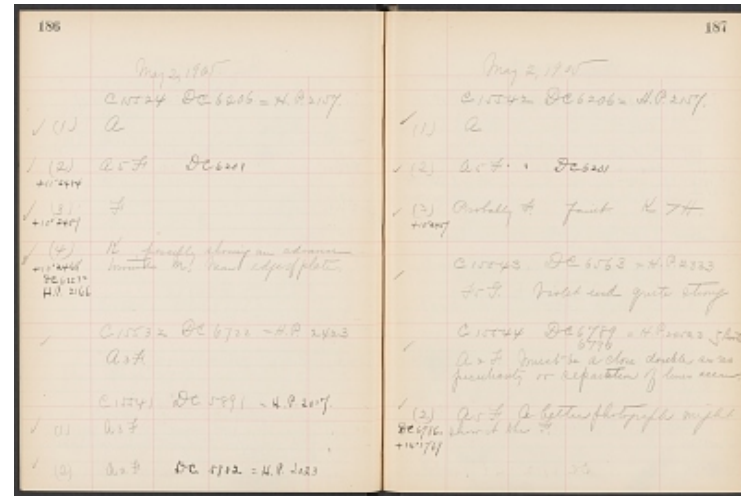 186
May 2, 1905
C 15524 DC 6206 = H.P. 2157.
(1) A
(2) A 5 F DC 6201
(3) F
(4) K possibly showing an advance
towards M. Near edge of plate.
H.P. 2166
C 15532 DC 6722 = H.P. 2423
A 5 F
C 15541 DC 5891 = H.P. 2017.
(1) A 5 F
(2) A 5 F. DC 5912 = H.P. 2023
187
May 2, 1905
C 15542 DC 6206 = H.P. 2157.
(1) A
(2) A 5 F. DC 6201
(3) Probably F. faint K > H.
C 15543 DC 6563 = H.P. 2323
F 5 G. Violet end quite strong
C 15544 DC 6789 = H.P.
A 5 F Must be a close double as no
peculiarity or separation of lines
(2) A 5 F A better photograph might
show it like F.